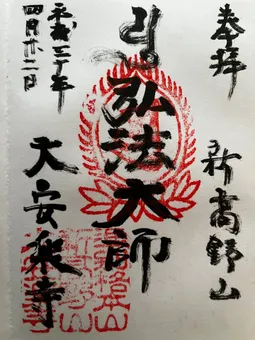 奉拝
新高野山
弘法大師
大安楽寺
平成三十年
四月廿二日